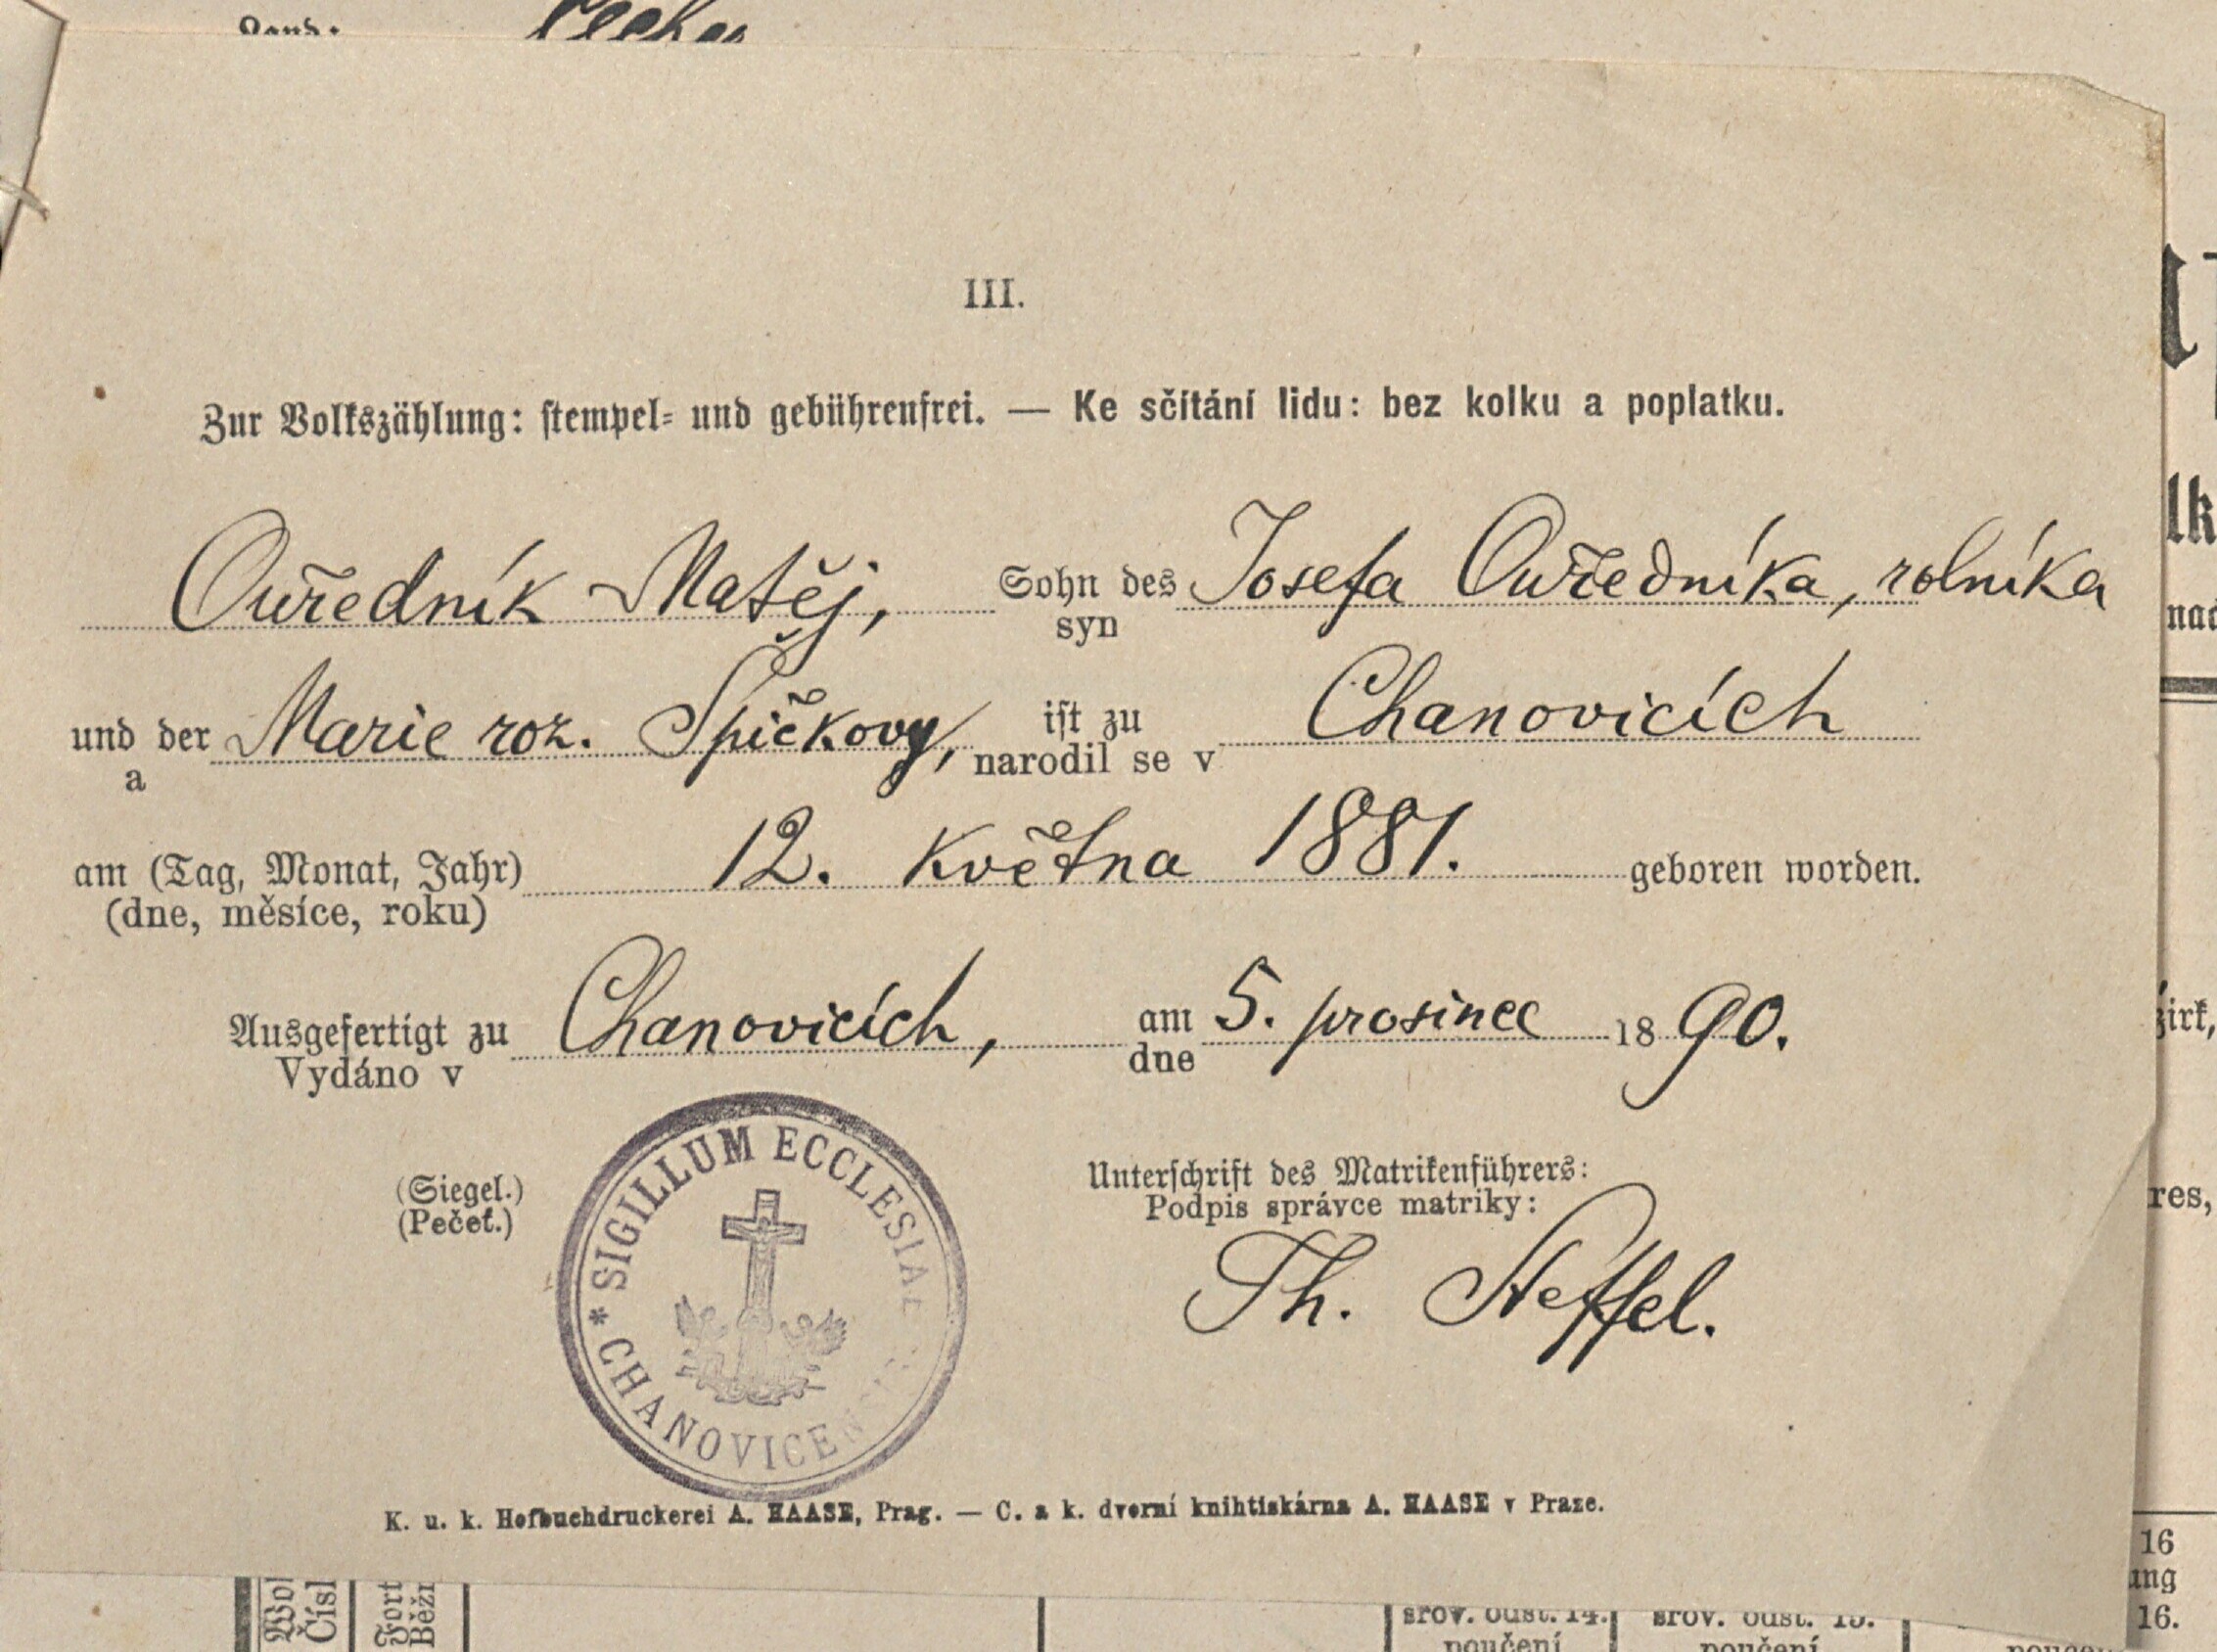 Land:
III.
Zur Volkszählung: stempel- und gebührenfrei. — Ke sčítání lidu: bez kolku a poplatku.
Ouředník Matěj, Sohn des Josefa Ouředníka, rolníka
syn
und der Marie roz. Špičkovy, ist zu Chanovicích
a narodil se v
am (Tag, Monat, Jahr) 12. května 1881. geboren worden.
(dne, měsíce, roku)
Ausgefertigt zu Chanovicích, am 5. prosince 1890.
Vydáno v dne
(Siegel.)
(Pečeť.)
* SIGILLUM ECCLESIAE
CHANOVICE
Unterschrift des Matrikenführers:
Podpis správce matriky:
Th. Steffel.
K. u. k. Hofbuchdruckerei A. HAASE, Prag. — C. a k. dvorní knihtiskárna A. HAASE v Praze.
lk
res,
16
16.
srov. odst. 14. srov. odst. 15.
poučení poučení